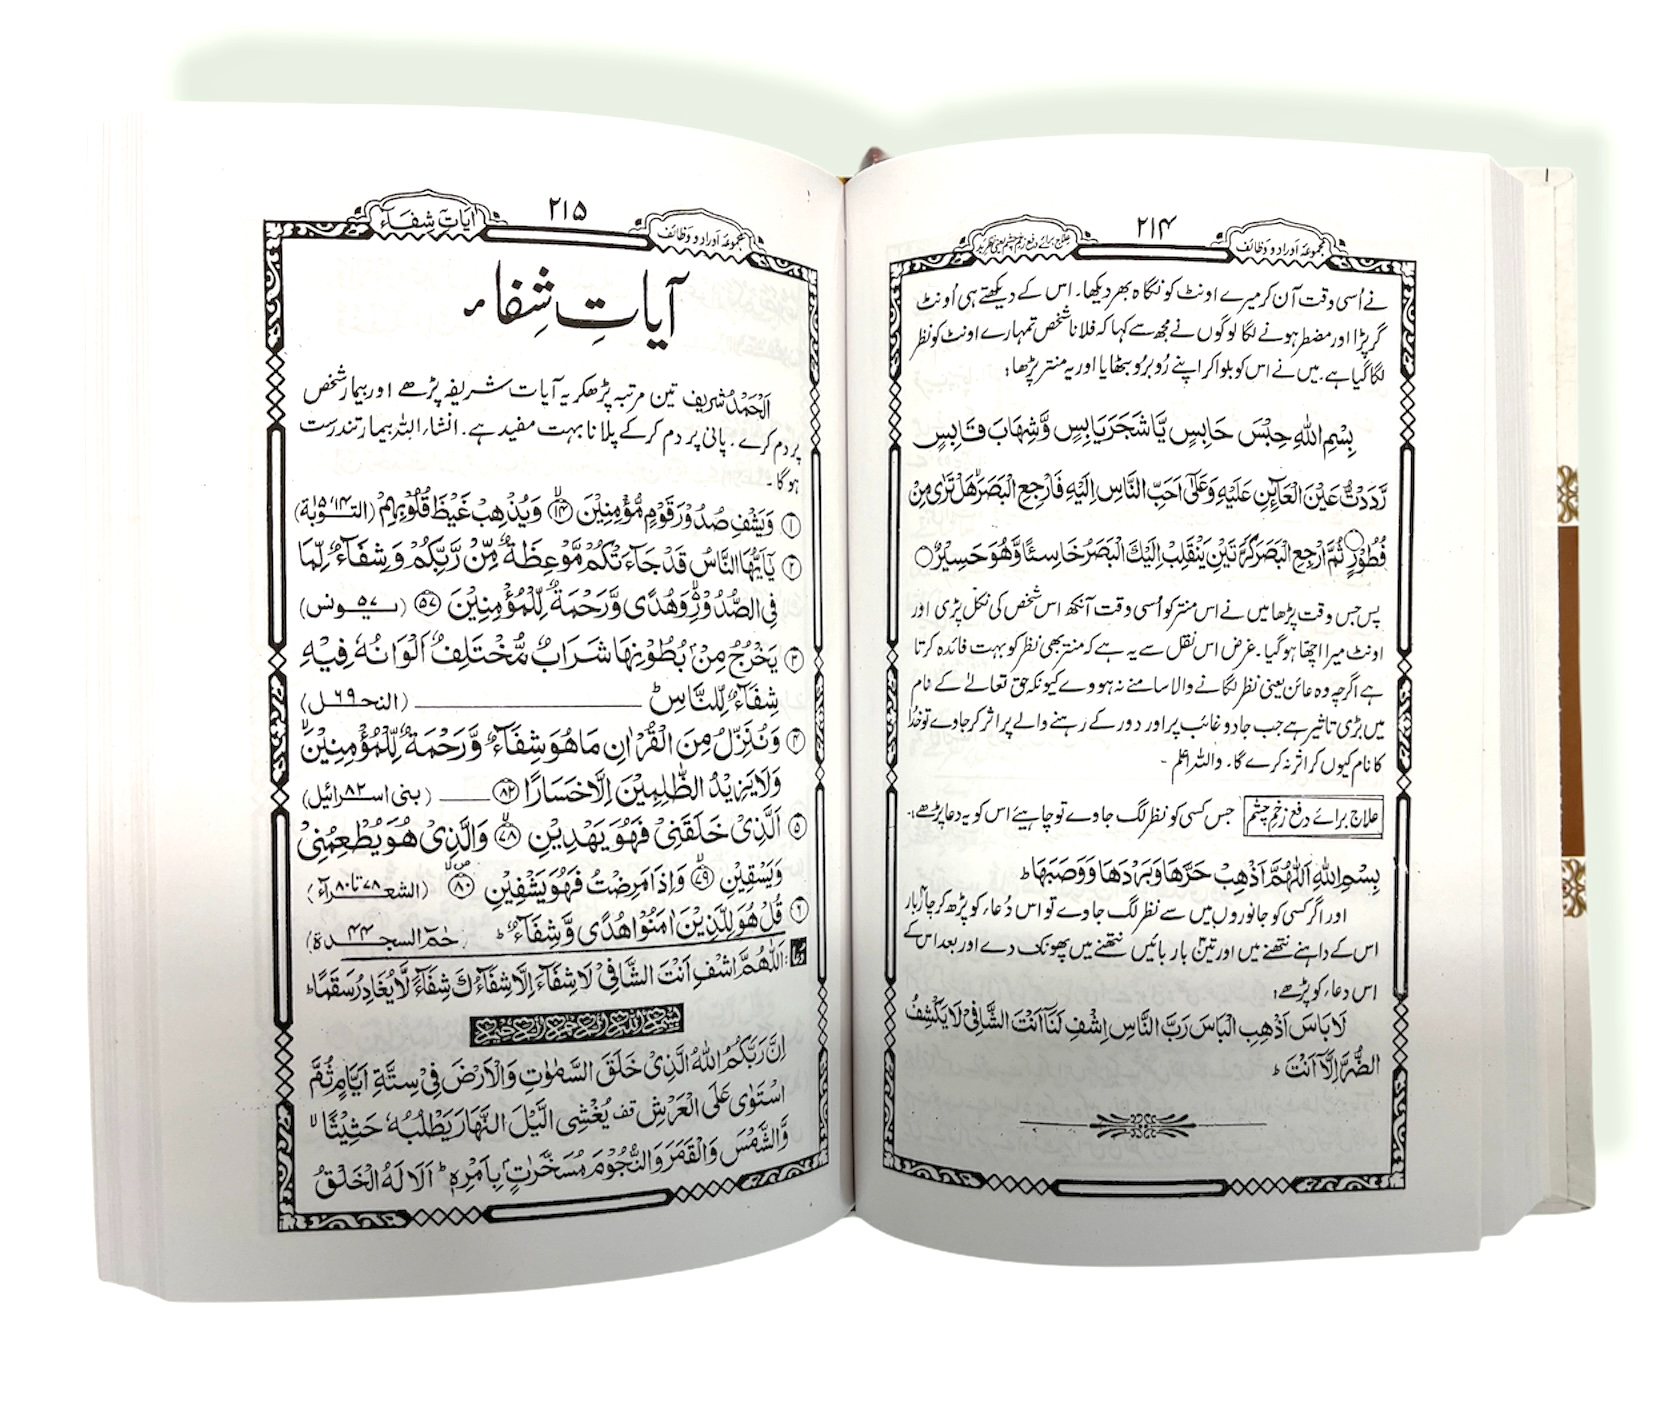 مجموعۂ اَوراد و وَظائف
۲۱۴
علاج برائے دفع زخمِ چشم یعنی نظرِ بد
نے اُسی وقت آن کر میرے اونٹ کو نگاہ بھر دیکھا۔ اس کے دیکھتے ہی اُونٹ
گر پڑا اور مضطر ہونے لگا لوگوں نے مجھ سے کہا کہ فلانا شخص تمہارے اونٹ کو نظر
لگا گیا ہے۔ میں نے اس کو بلوا کر اپنے رُو برُو بٹھایا اور یہ منتر پڑھا:
بِسْمِ اللهِ حِبْسَ حَابِسٍ يَّا شَجَرَ يَابِسٍ وَّشِهَابَ قَابِسٍ
رَدَدْتُّ عَيْنَ الْعَآئِنِ عَلَيْهِ وَعَلٰٓى اَحَبِّ النَّاسِ اِلَيْهِ فَارْجِعِ الْبَصَرَ هَلْ تَرٰى مِنْ
فُطُوْرٍ○ ثُمَّ ارْجِعِ الْبَصَرَ كَرَّتَيْنِ يَنْقَلِبْ اِلَيْكَ الْبَصَرُ خَاسِئًا وَّهُوَ حَسِيْرٌ○
پس جس وقت پڑھا میں نے اس منتر کو اُسی وقت آنکھ اس شخص کی نکل پڑی اور
اونٹ میرا اچھا ہو گیا۔ غرض اس نقل سے یہ ہے کہ منتر بھی نظر کو بہت فائدہ کرتا
ہے اگرچہ وہ عائن یعنی نظر لگانے والا سامنے نہ ہووے کیونکہ حق تعالیٰ کے نام
میں بڑی تاثیر ہے جب جادو غائب پر اور دور کے رہنے والے پر اثر کر جاوے تو خدا
کا نام کیوں کر اثر نہ کرے گا۔ واللہ اعلم -
علاج برائے دفع زخمِ چشم جس کسی کو نظر لگ جاوے تو چاہیئے اس کو یہ دعا پڑھے۔
بِسْمِ اللهِ اَللّٰهُمَّ اَذْهِبْ حَرَّهَا وَبَرْدَهَا وَوَصَبَهَا ط
اور اگر کسی کو جانوروں میں سے نظر لگ جاوے تو اس دُعاء کو پڑھ کر چار بار
اس کے داہنے نتھنے میں اور تین بار بائیں نتھنے میں پھونک دے اور بعد اس کے
اس دعاء کو پڑھے:
لَا بَاْسَ اَذْهِبِ الْبَاْسَ رَبَّ النَّاسِ اِشْفِ لَنَآ اَنْتَ الشَّافِيْ لَا يَكْشِفُ
الضُّرَّ اِلَّآ اَنْتَ ط
مجموعۂ اَوراد و وَظائف
۲۱۵
آیاتِ شِفَآء
آیاتِ شِفاء
اَلْحَمْدُ شریف تین مرتبہ پڑھکر یہ آیات شریفہ پڑھے اور بیمار شخص
پر دم کرے۔ پانی پر دم کر کے پلانا بہت مفید ہے۔ انشاء اللہ بیمار تندرست
ہوگا -
① وَيَشْفِ صُدُوْرَ قَوْمٍ مُّؤْمِنِيْنَ ﴿۱۴﴾ وَيُذْهِبْ غَيْظَ قُلُوْبِهِمْ (التوبة ۱۴، ۱۵)
② يٰٓاَيُّهَا النَّاسُ قَدْ جَآءَتْكُمْ مَّوْعِظَةٌ مِّنْ رَّبِّكُمْ وَشِفَآءٌ لِّمَا
فِى الصُّدُوْرِ وَهُدًى وَّرَحْمَةٌ لِّلْمُؤْمِنِيْنَ ﴿۵۷﴾ (يونس ۵۷)
③ يَخْرُجُ مِنْۢ بُطُوْنِهَا شَرَابٌ مُّخْتَلِفٌ اَلْوَانُهٗ فِيْهِ
شِفَآءٌ لِّلنَّاسِ ط ــــــــــــ (النحل ۶۹)
④ وَنُنَزِّلُ مِنَ الْقُرْاٰنِ مَا هُوَ شِفَآءٌ وَّرَحْمَةٌ لِّلْمُؤْمِنِيْنَ
وَلَا يَزِيْدُ الظّٰلِمِيْنَ اِلَّا خَسَارًا ﴿۸۲﴾ ــــــ (بنى اسرائيل ۸۲)
⑤ اَلَّذِىْ خَلَقَنِىْ فَهُوَ يَهْدِيْنِ ﴿۷۸﴾ وَالَّذِىْ هُوَ يُطْعِمُنِىْ
وَيَسْقِيْنِ ﴿۷۹﴾ وَاِذَا مَرِضْتُ فَهُوَ يَشْفِيْنِ ﴿۸۰﴾ (الشعرآء ۷۸ تا ۸۰)
⑥ قُلْ هُوَ لِلَّذِيْنَ اٰمَنُوْا هُدًى وَّشِفَآءٌ ط (حٰمٓ السجدة ۴۴)
دعا: اَللّٰهُمَّ اشْفِ اَنْتَ الشَّافِيْ لَا شِفَآءَ اِلَّا شِفَآءُكَ شِفَآءً لَّا يُغَادِرُ سَقَمًا ط
بسم الله الرحمن الرحيم
اِنَّ رَبَّكُمُ اللهُ الَّذِىْ خَلَقَ السَّمٰوٰتِ وَالْاَرْضَ فِىْ سِتَّةِ اَيَّامٍ ثُمَّ
اسْتَوٰى عَلَى الْعَرْشِ قف يُغْشِى الَّيْلَ النَّهَارَ يَطْلُبُهٗ حَثِيْثًا لا
وَّالشَّمْسَ وَالْقَمَرَ وَالنُّجُوْمَ مُسَخَّرٰتٍۭ بِاَمْرِهٖ ط اَلَا لَهُ الْخَلْقُ